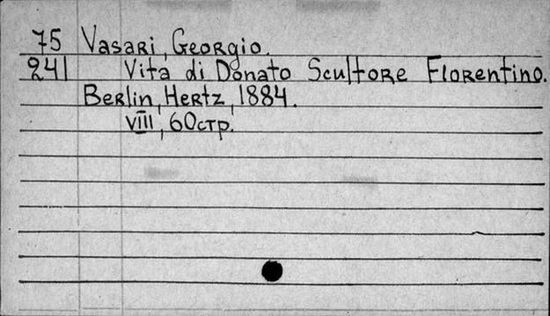 75 Vasari, Georgio.
241 Vita di Donato Scultore Florentino.
Berlin, Hertz, 1884.
VIII, 60стр.